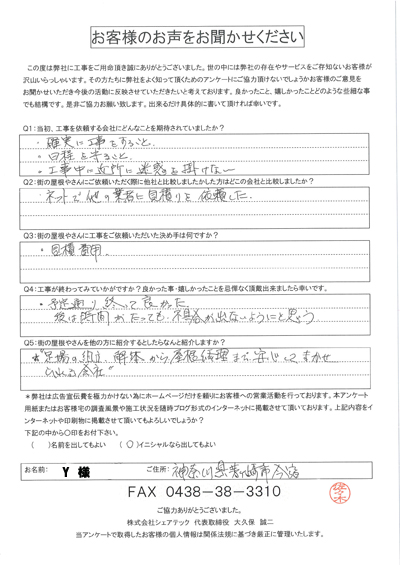 お客様のお声をお聞かせください
この度は弊社に工事をご用命頂き誠にありがとうございました。世の中には弊社の存在やサービスをご存知ないお客様が
沢山いらっしゃいます。その方たちに弊社をよく知って頂くためのアンケートにご協力頂けないでしょうかお客様のご意見を
お聞かせいただき今後の活動に反映させていただきたいと考えております。良かったこと、嬉しかったことどのような些細な事
でも結構です。是非ご協力お願い致します。出来るだけ具体的に書いて頂ければ幸いです。
Q1:当初、工事を依頼する会社にどんなことを期待されていましたか?
・確実に工事をすること
・日程を守ること
・工事中に近所に迷惑を掛けない
Q2:街の屋根やさんにご依頼いただく際に他社と比較しましたかした方はどこの会社と比較しましたか?
・ネットで他の業者に見積りを依頼した。
Q3:街の屋根やさんに工事をご依頼いただいた決め手は何ですか?
・見積費用
Q4:工事が終わってみていかがですか?良かった事・嬉しかったことを忌憚なく頂戴出来ましたら幸いです。
・予定通り終って良かった
後は時間がたっても不具合が出ないようにと思う
Q5:街の屋根やさんを他の方に紹介するとしたらなんと紹介しますか?
"足場の組立、解体から屋根修理まで安心してまかせ
られる会社"
*弊社は広告宣伝費を極力かけない為にホームページだけを頼りにお客様への営業活動を行っております。本アンケート
用紙またはお客様宅の調査風景や施工状況を随時ブログ形式のインターネットに掲載させて頂いております。上記内容をイ
ンターネットや印刷物に掲載させて頂いてもよろしいでしょうか?
下記の中から〇印をお付下さい。
( )名前を出してもよい ( 〇 )イニシャルなら出してもよい
お名前: Y 様 ご住所: 神奈川県茅ヶ崎市今宿
FAX 0438-38-3310
ご協力ありがとうございました。
株式会社シェアテック 代表取締役 大久保 誠二
当アンケートで取得したお客様の個人情報は関係法規に基づき厳正に管理いたします。